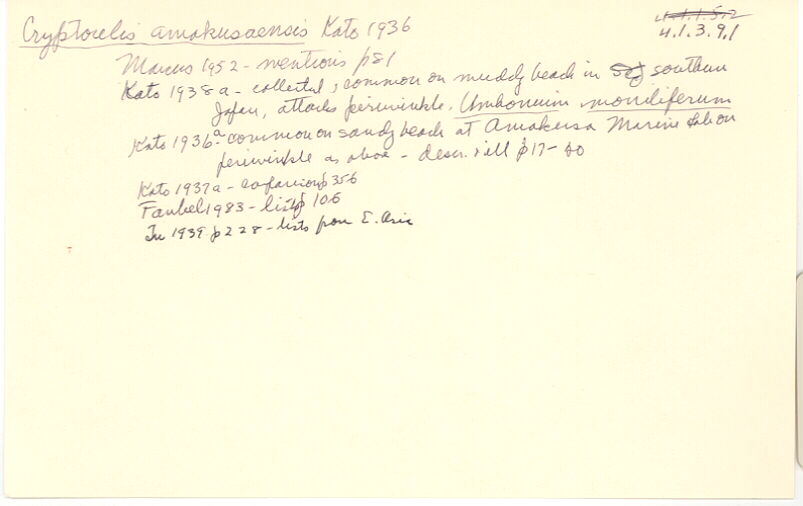 Cryptocelis amakusaensis Kato 1936
4.1.1.5.2
4.1.3.9.1
Marcus 1952 - mentions p81
Kato 1938a - collected; common on muddy beach in southern
Japan, attacks periwinkle, Umbonium moniliferum
Kato 1936a - common on sandy beach at Amakusa Marine Lab on
periwinkle as above - descr. & ill p17-
Kato 1937a - comparison p356
Faubel 1983 - lists p 106
Tu 1939 p228 - lists from E. Asia